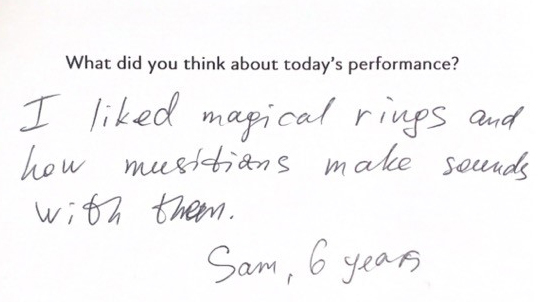 What did you think about today's performance?
I liked magical rings and
how musitians make sounds
with them.
Sam, 6 years